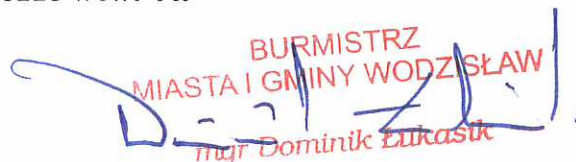 BURMISTRZ
MIASTA I GMINY WODZISŁAW
mgr Dominik Łukasik